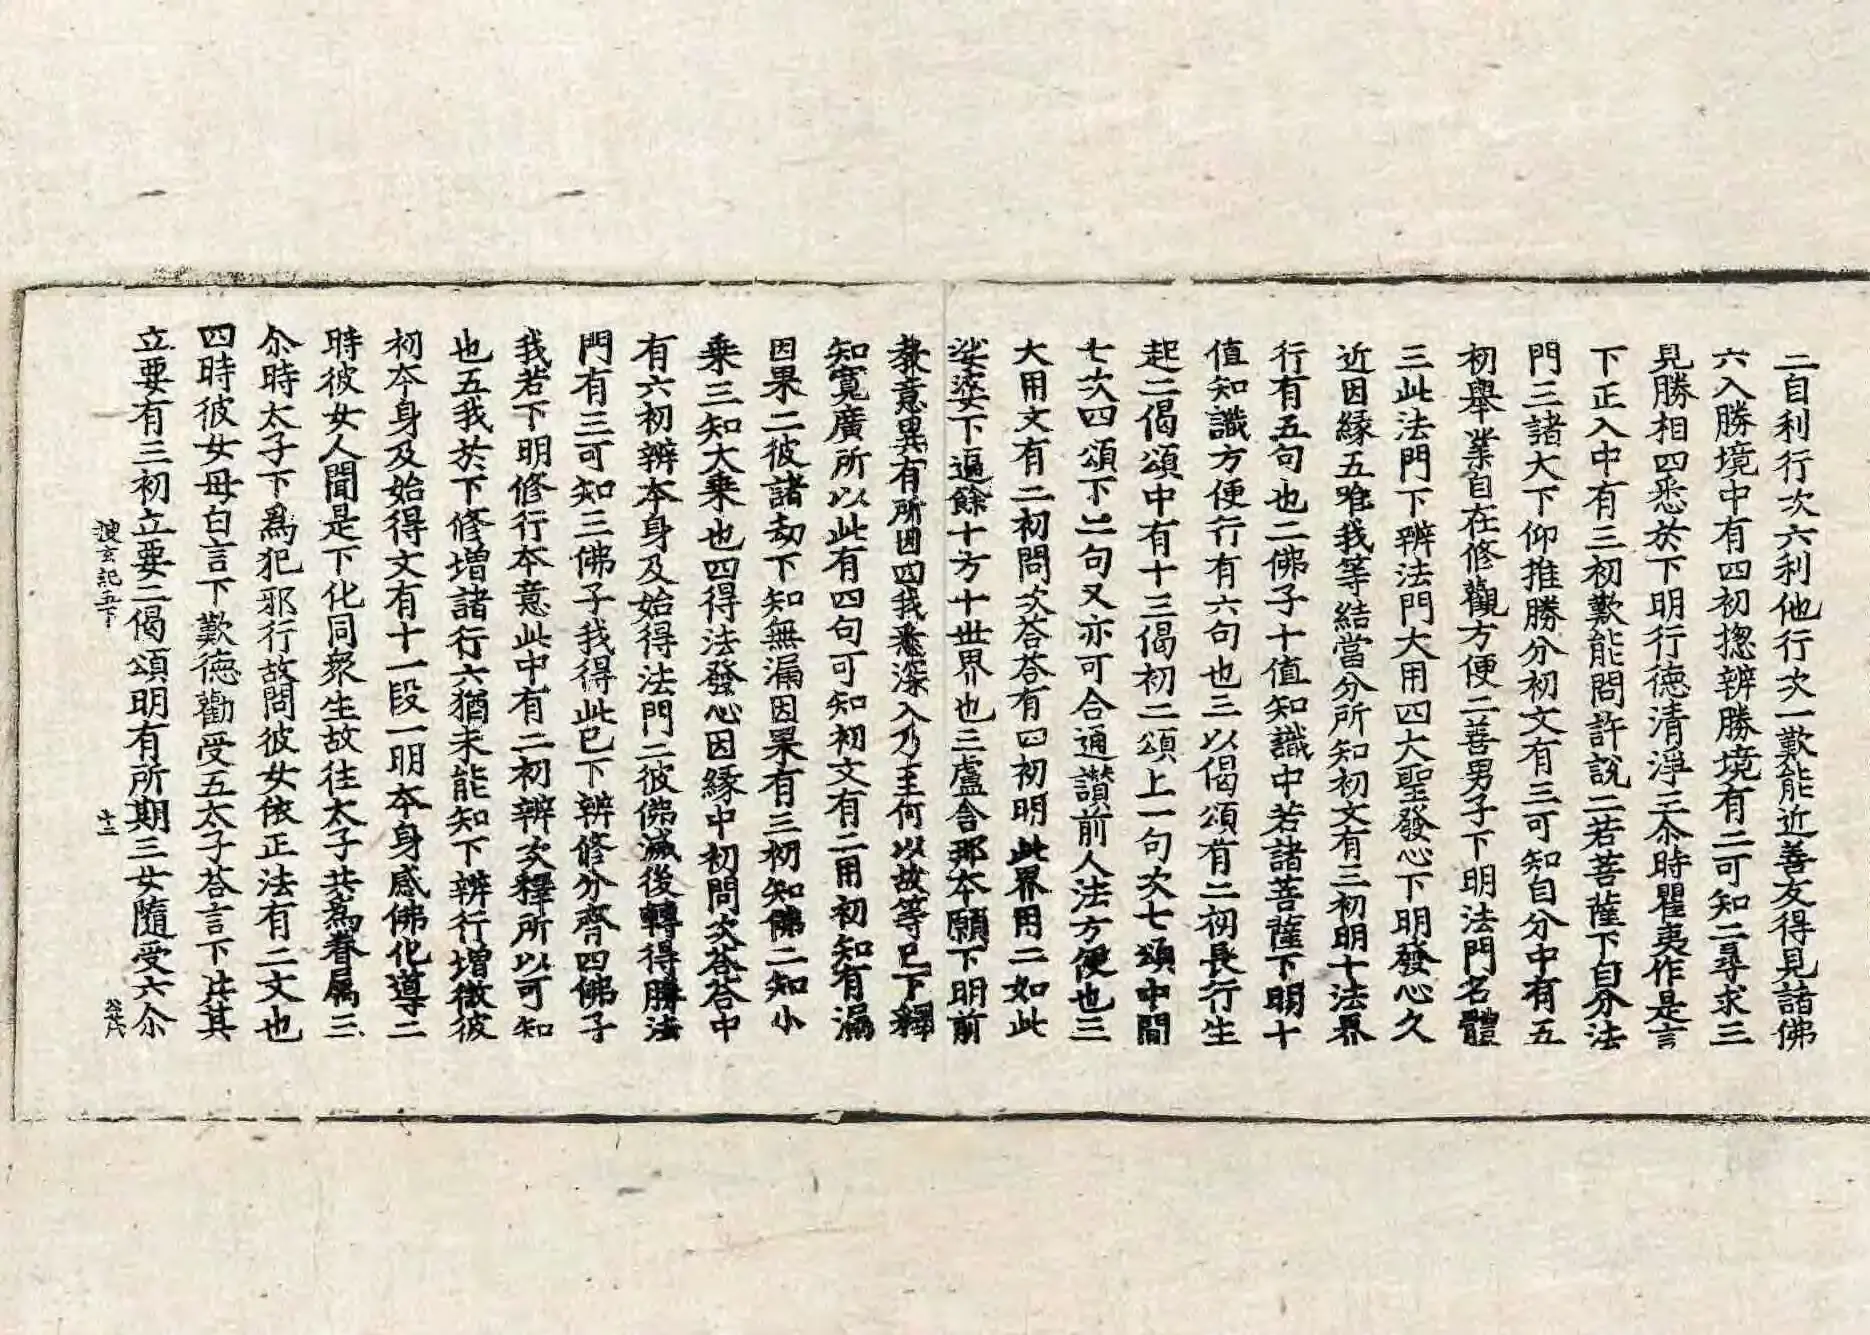 二自利行次六利他行次一歎能近善友得見諸佛
六入勝境中有四初揔辨勝境有二可知二尋求三
見勝相四悉於下明行德清淨二尒時瞿夷作是言
下正入中有三初歎能問許說二若菩薩下自分法
門三諸大下仰推勝分初文有三可知自分中有五
初舉業自在修觀方便二善男子下明法門名體
三此法門下辨法門大用四大聖發心下明發心久
近因緣五唯我等結當分所知初文有三初明十法界
行有五句也二佛子十值知識中若諸菩薩下明十
值知識方便行有六句也三以偈頌有二初長行生
起二偈頌中有十三偈初二頌上一句次七頌中間
七次四頌下二句又亦可合通讚前人法方便也三
大用文有二初問次荅荅有四初明此界用二如此
娑婆下遍餘十方十世界也三盧舍那本願下明前
教意異有所因四我悉深入乃至何以故等已下釋
知寬廣所以此有四句可知初文有二用初知有漏
因果二彼諸劫下知無漏因果有三初知佛二知小
乗三知大乗也四得法發心因緣中初問次荅荅中
有六初辨本身及始得法門二彼佛滅後轉得勝法
門有三可知三佛子我得此已下辨修分齊四佛子
我若下明修行本意此中有二初辨次釋所以可知
也五我於下修增諸行六猶未能知下辨行增微彼
初本身及始得文有十一段一明本身感佛化導二
時彼女人聞是下化同衆生故往太子共為眷属三
尒時太子下為犯邪行故問彼女依正法有二文也
四時彼女母白言下歎德勸受五太子荅言下共其
立要有三初立要二偈頌明有所期三女隨受六尒
搜玄記五下　十二